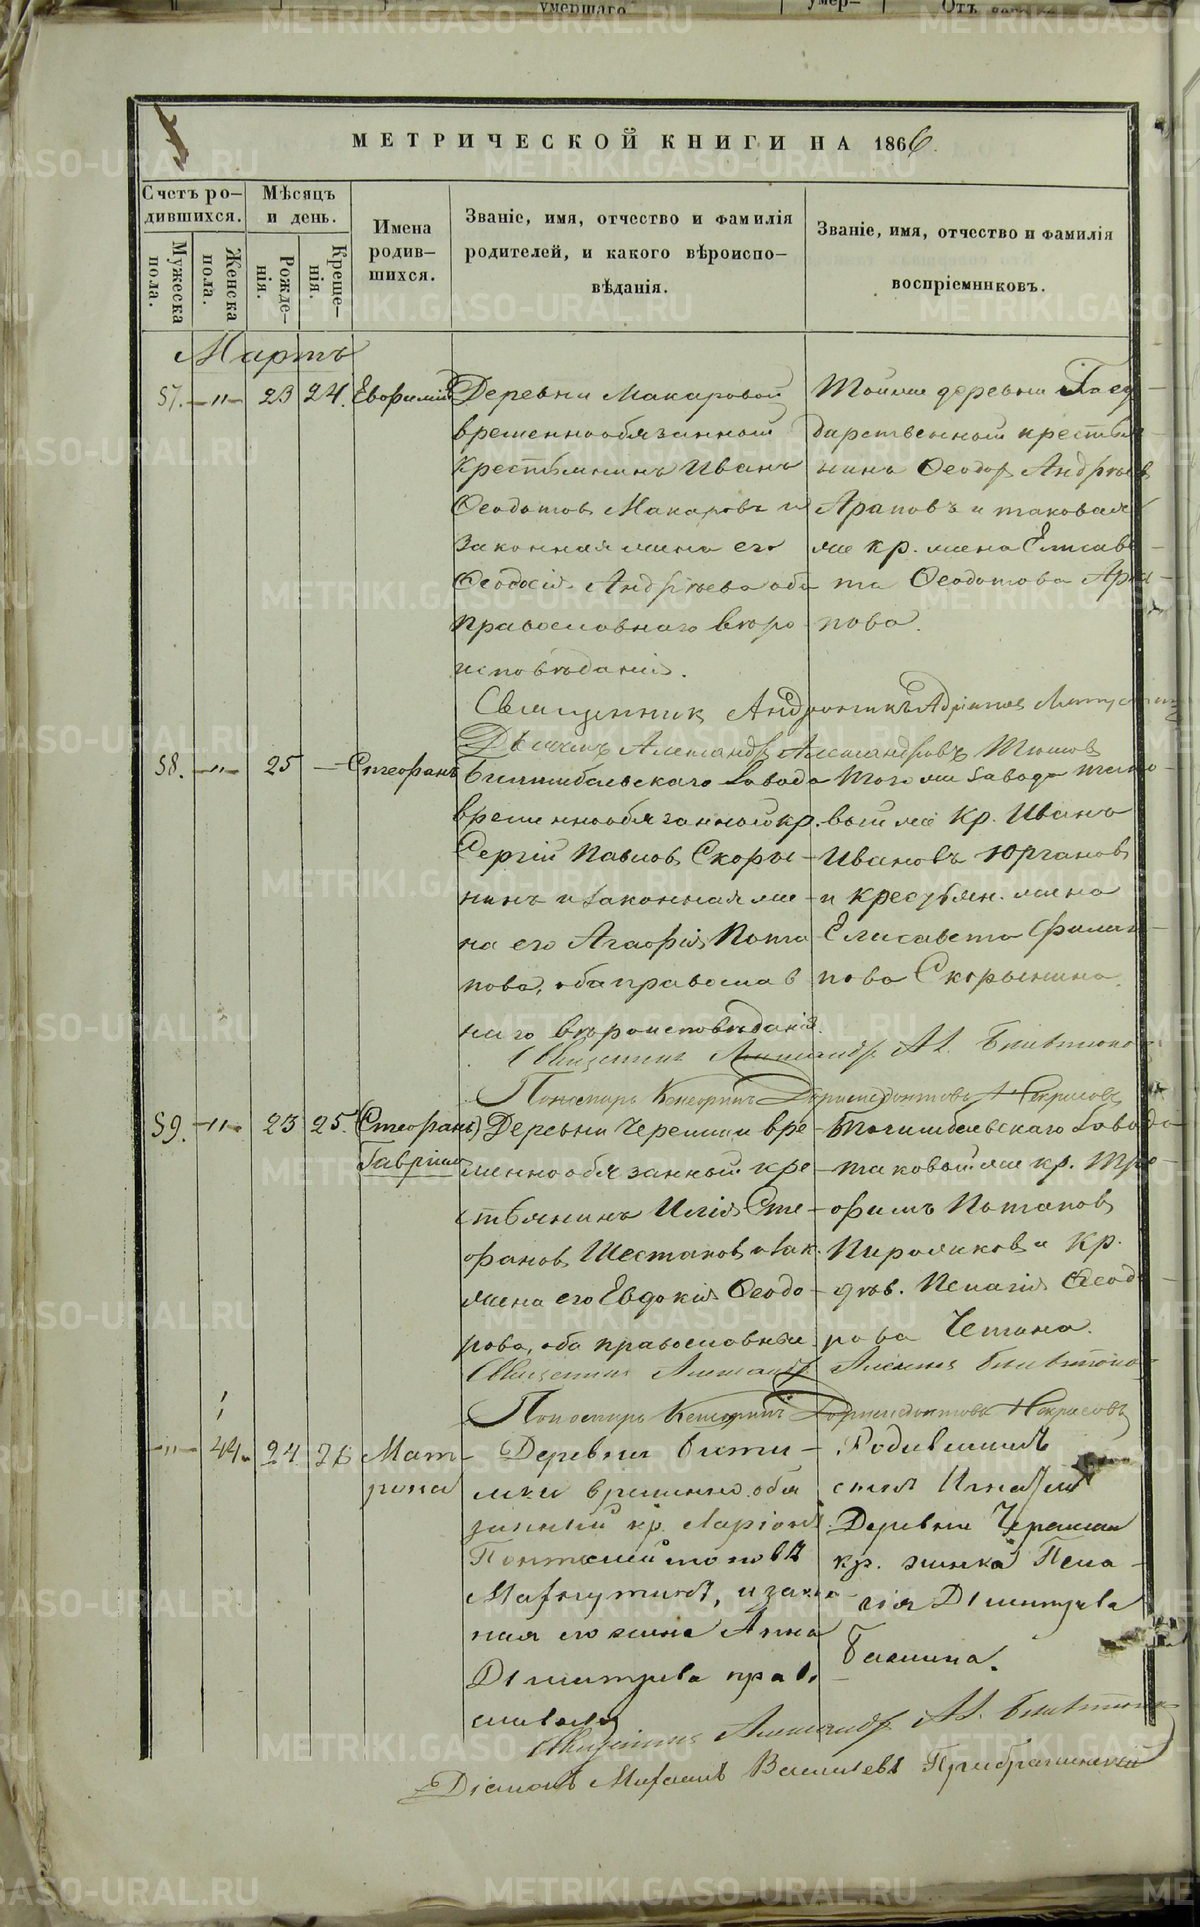 умершаго
умер-
Отъ чего
МЕТРИЧЕСКОЙ КНИГИ НА 1866
Счетъ ро-
дившихся.
Мужеска
пола.
Женска
пола.
Мѣсяцъ
и день.
Рожде-
нія.
Креще-
нія.
Имена
родив-
шихся.
Званіе, имя, отчество и фамилія
родителей, и какого вѣроиспо-
вѣданія.
Званіе, имя, отчество и фамилія
воспріемниковъ.
Мартъ
57. -"- 23 24. Евфимій
Деревни Макаровой
временнообязанный
крестьянинъ Иванъ
Ѳеодотовъ Макаровъ и
законная жена его
Ѳеодосія Андрѣева оба
православнаго вѣро
исповѣданія.
Тойже деревни Госу-
дарственный крестья-
нинъ Ѳеодоръ Андрѣевъ
Араповъ и таковая
же кр. жена Елисаве-
та Ѳеодотова Ара-
пова.
Священникъ Андроникъ Адріановъ
Дьячекъ Александръ Александровъ
58. -"- 25 — Стефанъ
Билимбаевскаго завода
временнообязанный кр.
Сергій Павловъ Скоры-
нинъ и законная же-
на его Агафія Пота
пова, оба православ
наго вѣроисповѣданія.
Того же завода тако-
вый же кр. Иванъ
Ивановъ Юргановъ
и крестьян. жена
Елисавета Филип-
пова Скорынина.
Священникъ Александръ Ал.
Пономарь Ксенофонтъ Дормедонтовъ Некрасовъ
59. -"- 23 25. (Стефанъ)
Гавріилъ
Деревни Черемши вре-
меннообязанный кре-
стьянинъ Илія Сте-
фановъ Шестаковъ и зак.
жена его Евдокія Ѳеодо-
рова, оба православные
Билимбаевскаго завода
таковый же кр. Тро-
фимъ Потаповъ
Пироженковъ и кр.
дѣв. Пелагія Ѳеодо-
рова Четина.
Священникъ Александръ Алексіевъ
Пономарь Ксенофонтъ Дормедонтовъ Некрасовъ
-"- 44. 24 26 Мат-
рона
Деревни Битим-
ки временно обя
занный кр. Ларіонъ
и закон-
ная его жена Анна
Димитріева право
славные
Родившимъ
сынъ Игнатій
Деревни Черемши
кр. жинка Пела-
гія Димитріева
Баснина.
Священникъ Александръ Ал.
Діаконъ Михаилъ Васильевъ Преображенскій
METRIKI.GASO-URAL.RU